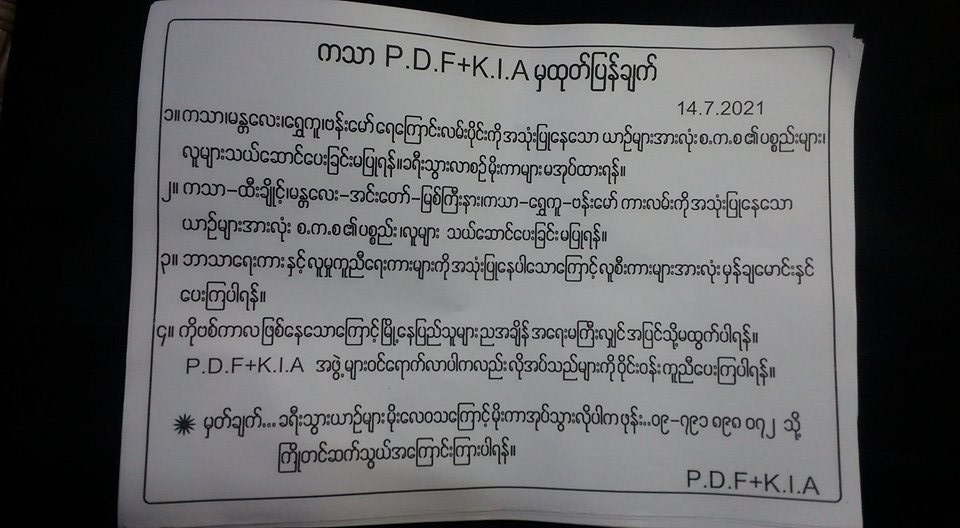 ကသာ P.D.F+K.I.A မှထုတ်ပြန်ချက်
14.7.2021
၁။ ကသာ၊မန္တလေး၊ရွှေကူ၊ဗန်းမော် ရေကြောင်းလမ်းပိုင်းကို အသုံးပြုနေသော ယာဉ်များအားလုံး စ.က.စ ၏ ပစ္စည်းများ၊
လူများသယ်ဆောင်ပေးခြင်းမပြုရန်။ ခရီးသွားလာစဉ် မိုးကာများ မအုပ်ထားရန်။
၂။ ကသာ–ထီးချိုင့်၊မန္တလေး–အင်းတော်–မြစ်ကြီးနား၊ကသာ–ရွှေကူ–ဗန်းမော် ကားလမ်းကို အသုံးပြုနေသော
ယာဉ်များအားလုံး စ.က.စ ၏ ပစ္စည်း၊လူများ သယ်ဆောင်ပေးခြင်းမပြုရန်။
၃။ ဘာသာရေးကား နှင့် လူမှုကူညီရေးကားများကို အသုံးပြုနေပါသောကြောင့် လူစီးကားများအားလုံး မှန်ချမောင်းနှင်
ပေးကြပါရန်။
၄။ ကိုဗစ်ကာလ ဖြစ်နေသောကြောင့် မြို့နေပြည်သူများ ညအချိန် အရေးမကြီးလျှင် အပြင်သို့မထွက်ပါရန်။
P.D.F+K.I.A အဖွဲ့များဝင်ရောက်လာပါကလည်း လိုအပ်သည်များကို ဝိုင်းဝန်းကူညီပေးကြပါရန်။
✷ မှတ်ချက်... ခရီးသွားယာဉ်များ မိုးလေဝသကြောင့် မိုးကာအုပ်သွားလိုပါက ဖုန်း..၀၉–၇၉၁ ၈၉၈ ၀၇၂ သို့
ကြိုတင်ဆက်သွယ်အကြောင်းကြားပါရန်။
P.D.F+K.I.A